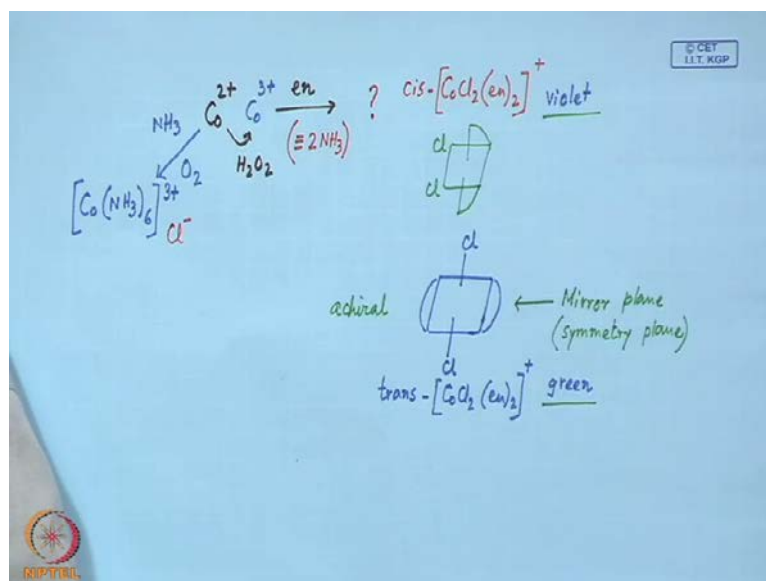 © CET
I.I.T. KGP
Co²⁺ Co³⁺ en → ? cis-[CoCl₂(en)₂]⁺ violet
NH₃ (≡ 2NH₃)
H₂O₂
O₂
[Co(NH₃)₆]³⁺ Cl⁻
Cl
Cl
Cl
achiral ← Mirror plane
(symmetry plane)
Cl
trans-[CoCl₂(en)₂]⁺ green
NPTEL